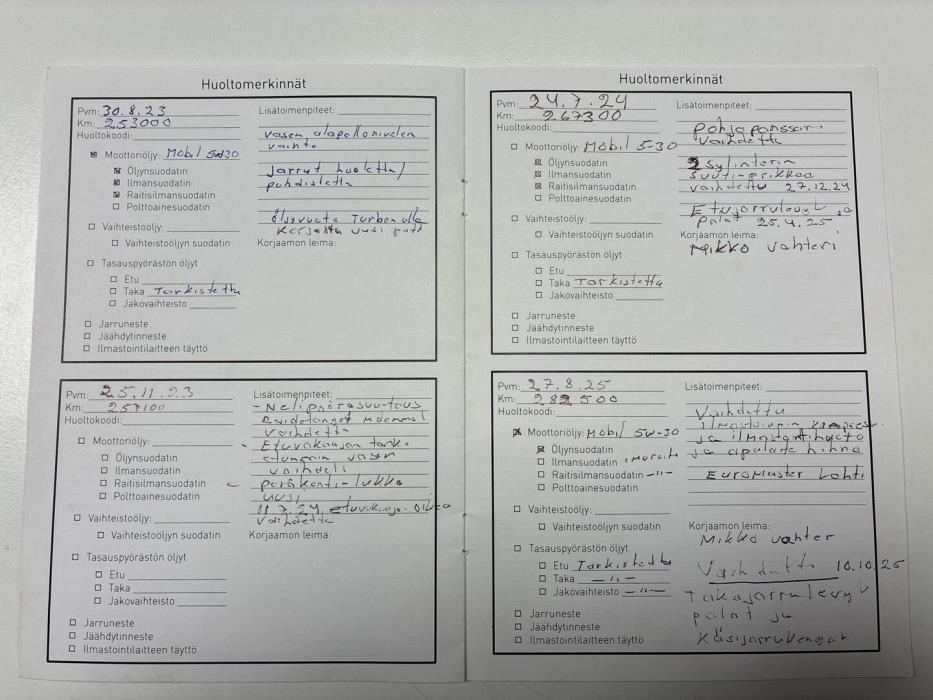 Huoltomerkinnät
Pvm: 30.8.23
Km: 253000
Huoltokoodi:
Moottoriöljy: Mobil 5w30
Öljynsuodatin
Ilmansuodatin
Raitisilmansuodatin
Polttoainesuodatin
Vaihteistoöljy:
Vaihteistoöljyn suodatin
Tasauspyörästön öljyt
Etu
Taka Tarkistettu
Jakovaihteisto
Jarruneste
Jäähdytinneste
Ilmastointilaitteen täyttö
Lisätoimenpiteet:
vasen alapallonivelen
vaihto
Jarrut huollettu/
puhdistettu
Öljyvuoto Turbon alla
Korjattu uusi
Korjaamon leima:
Pvm: 25.11.23
Km: 257100
Huoltokoodi:
Moottoriöljy:
Öljynsuodatin
Ilmansuodatin
Raitisilmansuodatin
Polttoainesuodatin
Vaihteistoöljy:
Vaihteistoöljyn suodatin
Tasauspyörästön öljyt
Etu
Taka
Jakovaihteisto
Jarruneste
Jäähdytinneste
Ilmastointilaitteen täyttö
Lisätoimenpiteet:
- Nelipyöräsuuntaus
Raidetangot molemmat
vaihdettu
- Etuvakaajan tank.
etummain vasen
vaihdett
- peräkontti-lukko
uusi
11.7.24 etuvakaaja. oikea
vaihdettu
Korjaamon leima:
Huoltomerkinnät
Pvm: 24.7.24
Km: 267300
Huoltokoodi:
Moottoriöljy: Mobil 5-30
Öljynsuodatin
Ilmansuodatin
Raitisilmansuodatin
Polttoainesuodatin
Vaihteistoöljy:
Vaihteistoöljyn suodatin
Tasauspyörästön öljyt
Etu
Taka Tarkistettu
Jakovaihteisto
Jarruneste
Jäähdytinneste
Ilmastointilaitteen täyttö
Lisätoimenpiteet:
Pohjapanssar.
vaihdettu
2 Sylinterin
suutinprikkaa
vaihdettu 27.12.24
Etujarrulevyt ja
palat 25.4.25
Korjaamon leima:
Mikko vahteri
Pvm: 27.8.25
Km: 282500
Huoltokoodi:
Moottoriöljy: Mobil 5w-30
Öljynsuodatin
Ilmansuodatin imuroitu
Raitisilmansuodatin -"-
Polttoainesuodatin
Vaihteistoöljy:
Vaihteistoöljyn suodatin
Tasauspyörästön öljyt
Etu Tarkistettu
Taka -"-
Jakovaihteisto -"-
Jarruneste
Jäähdytinneste
Ilmastointilaitteen täyttö
Lisätoimenpiteet:
Vaihdettu
ilmastoinnin kompress.
ja ilmastointihuolto
ja apulaite hihna
EuroMaster Lahti
Korjaamon leima:
Mikko vahter
Vaihdettu 10.10.25
Takajarrulevyt
palat ja
Käsijarrukengät